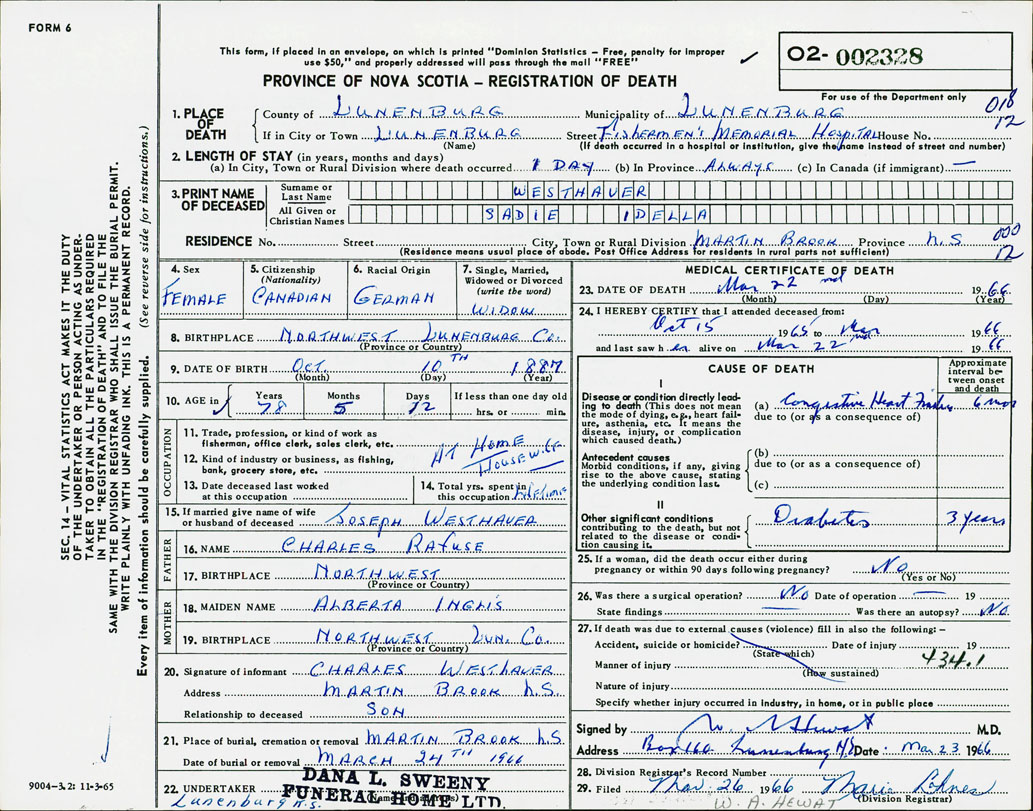 FORM 6
This form, if placed in an envelope, on which is printed "Dominion Statistics – Free, penalty for improper
use $50," and properly addressed will pass through the mail "FREE"
O2- 002328
PROVINCE OF NOVA SCOTIA – REGISTRATION OF DEATH
For use of the Department only
018
12
1. PLACE OF DEATH
County of LUNENBURG Municipality of LUNENBURG
If in City or Town LUNENBURG Street FISHERMEN'S MEMORIAL HOSPITAL House No.
(Name) (If death occurred in a hospital or institution, give the name instead of street and number)
2. LENGTH OF STAY (in years, months and days)
(a) In City, Town or Rural Division where death occurred 1 DAY (b) In Province ALWAYS (c) In Canada (if immigrant) —
3. PRINT NAME OF DECEASED
Surname or Last Name WESTHAVER
All Given or Christian Names SADIE IDELLA
000
12
RESIDENCE No. Street City, Town or Rural Division MARTIN BROOK Province N.S
(Residence means usual place of abode. Post Office Address for residents in rural parts not sufficient)
SEC. 14 – VITAL STATISTICS ACT MAKES IT THE DUTY
OF THE UNDERTAKER OR PERSON ACTING AS UNDER-
TAKER TO OBTAIN ALL THE PARTICULARS REQUIRED
IN THE "REGISTRATION OF DEATH" AND TO FILE THE
SAME WITH THE DIVISION REGISTRAR WHO SHALL ISSUE THE BURIAL PERMIT.
WRITE PLAINLY WITH UNFADING INK. THIS IS A PERMANENT RECORD.
Every item of information should be carefully supplied. (See reverse side for instructions.)
4. Sex
FEMALE
5. Citizenship
(Nationality)
CANADIAN
6. Racial Origin
GERMAN
7. Single, Married,
Widowed or Divorced
(write the word)
WIDOW
8. BIRTHPLACE NORTHWEST LUNENBURG Co.
(Province or Country)
9. DATE OF BIRTH Oct. 10TH 1887
(Month) (Day) (Year)
10. AGE in
Years 78 Months 5 Days 12
If less than one day old
hrs. or min.
OCCUPATION
11. Trade, profession, or kind of work as
fisherman, office clerk, sales clerk, etc.
AT HOME
12. Kind of industry or business, as fishing,
bank, grocery store, etc.
HOUSEWIFE
13. Date deceased last worked
at this occupation
14. Total yrs. spent in
this occupation Lifetime
15. If married give name of wife
or husband of deceased JOSEPH WESTHAVER
FATHER
16. NAME CHARLES RAFUSE
17. BIRTHPLACE NORTHWEST
(Province or Country)
MOTHER
18. MAIDEN NAME ALBERTA INGLIS
19. BIRTHPLACE NORTHWEST LUN. Co.
(Province or Country)
20. Signature of informant CHARLES WESTHAVER
Address MARTIN BROOK N.S
Relationship to deceased SON
21. Place of burial, cremation or removal MARTIN BROOK N.S
Date of burial or removal MARCH 24TH 1966
22. UNDERTAKER DANA L. SWEENY
FUNERAL HOME LTD.
Lunenburg N.S.
9004–3.2: 11-3-65
MEDICAL CERTIFICATE OF DEATH
23. DATE OF DEATH Mar 22nd 1966
(Month) (Day) (Year)
24. I HEREBY CERTIFY that I attended deceased from:
Oct 15 1965 to Mar 1966
and last saw her alive on Mar 22nd 1966
CAUSE OF DEATH
Approximate
interval be-
tween onset
and death
I
Disease or condition directly lead-
ing to death (This does not mean
the mode of dying, e.g., heart fail-
ure, asthenia, etc. It means the
disease, injury, or complication
which caused death.)
(a) Congestive Heart Failure 6 mos
due to (or as a consequence of)
Antecedent causes
Morbid conditions, if any, giving
rise to the above cause, stating
the underlying condition last.
(b)
due to (or as a consequence of)
(c)
II
Other significant conditions
contributing to the death, but not
related to the disease or condi-
tion causing it.
Diabetes 3 years
25. If a woman, did the death occur either during
pregnancy or within 90 days following pregnancy? No
(Yes or No)
26. Was there a surgical operation? No Date of operation — 19
State findings — Was there an autopsy? No
27. If death was due to external causes (violence) fill in also the following: –
Accident, suicide or homicide? Date of injury 19
(State which)
434.1
Manner of injury
(How sustained)
Nature of injury
Specify whether injury occurred in industry, in home, or in public place
Signed by W A Hewat M.D.
Address Box 160 Lunenburg N.S Date Mar 23 1966
28. Division Registrar's Record Number
29. Filed Mar. 26 1966 Marie
(Division Registrar)
W. A. HEWAT